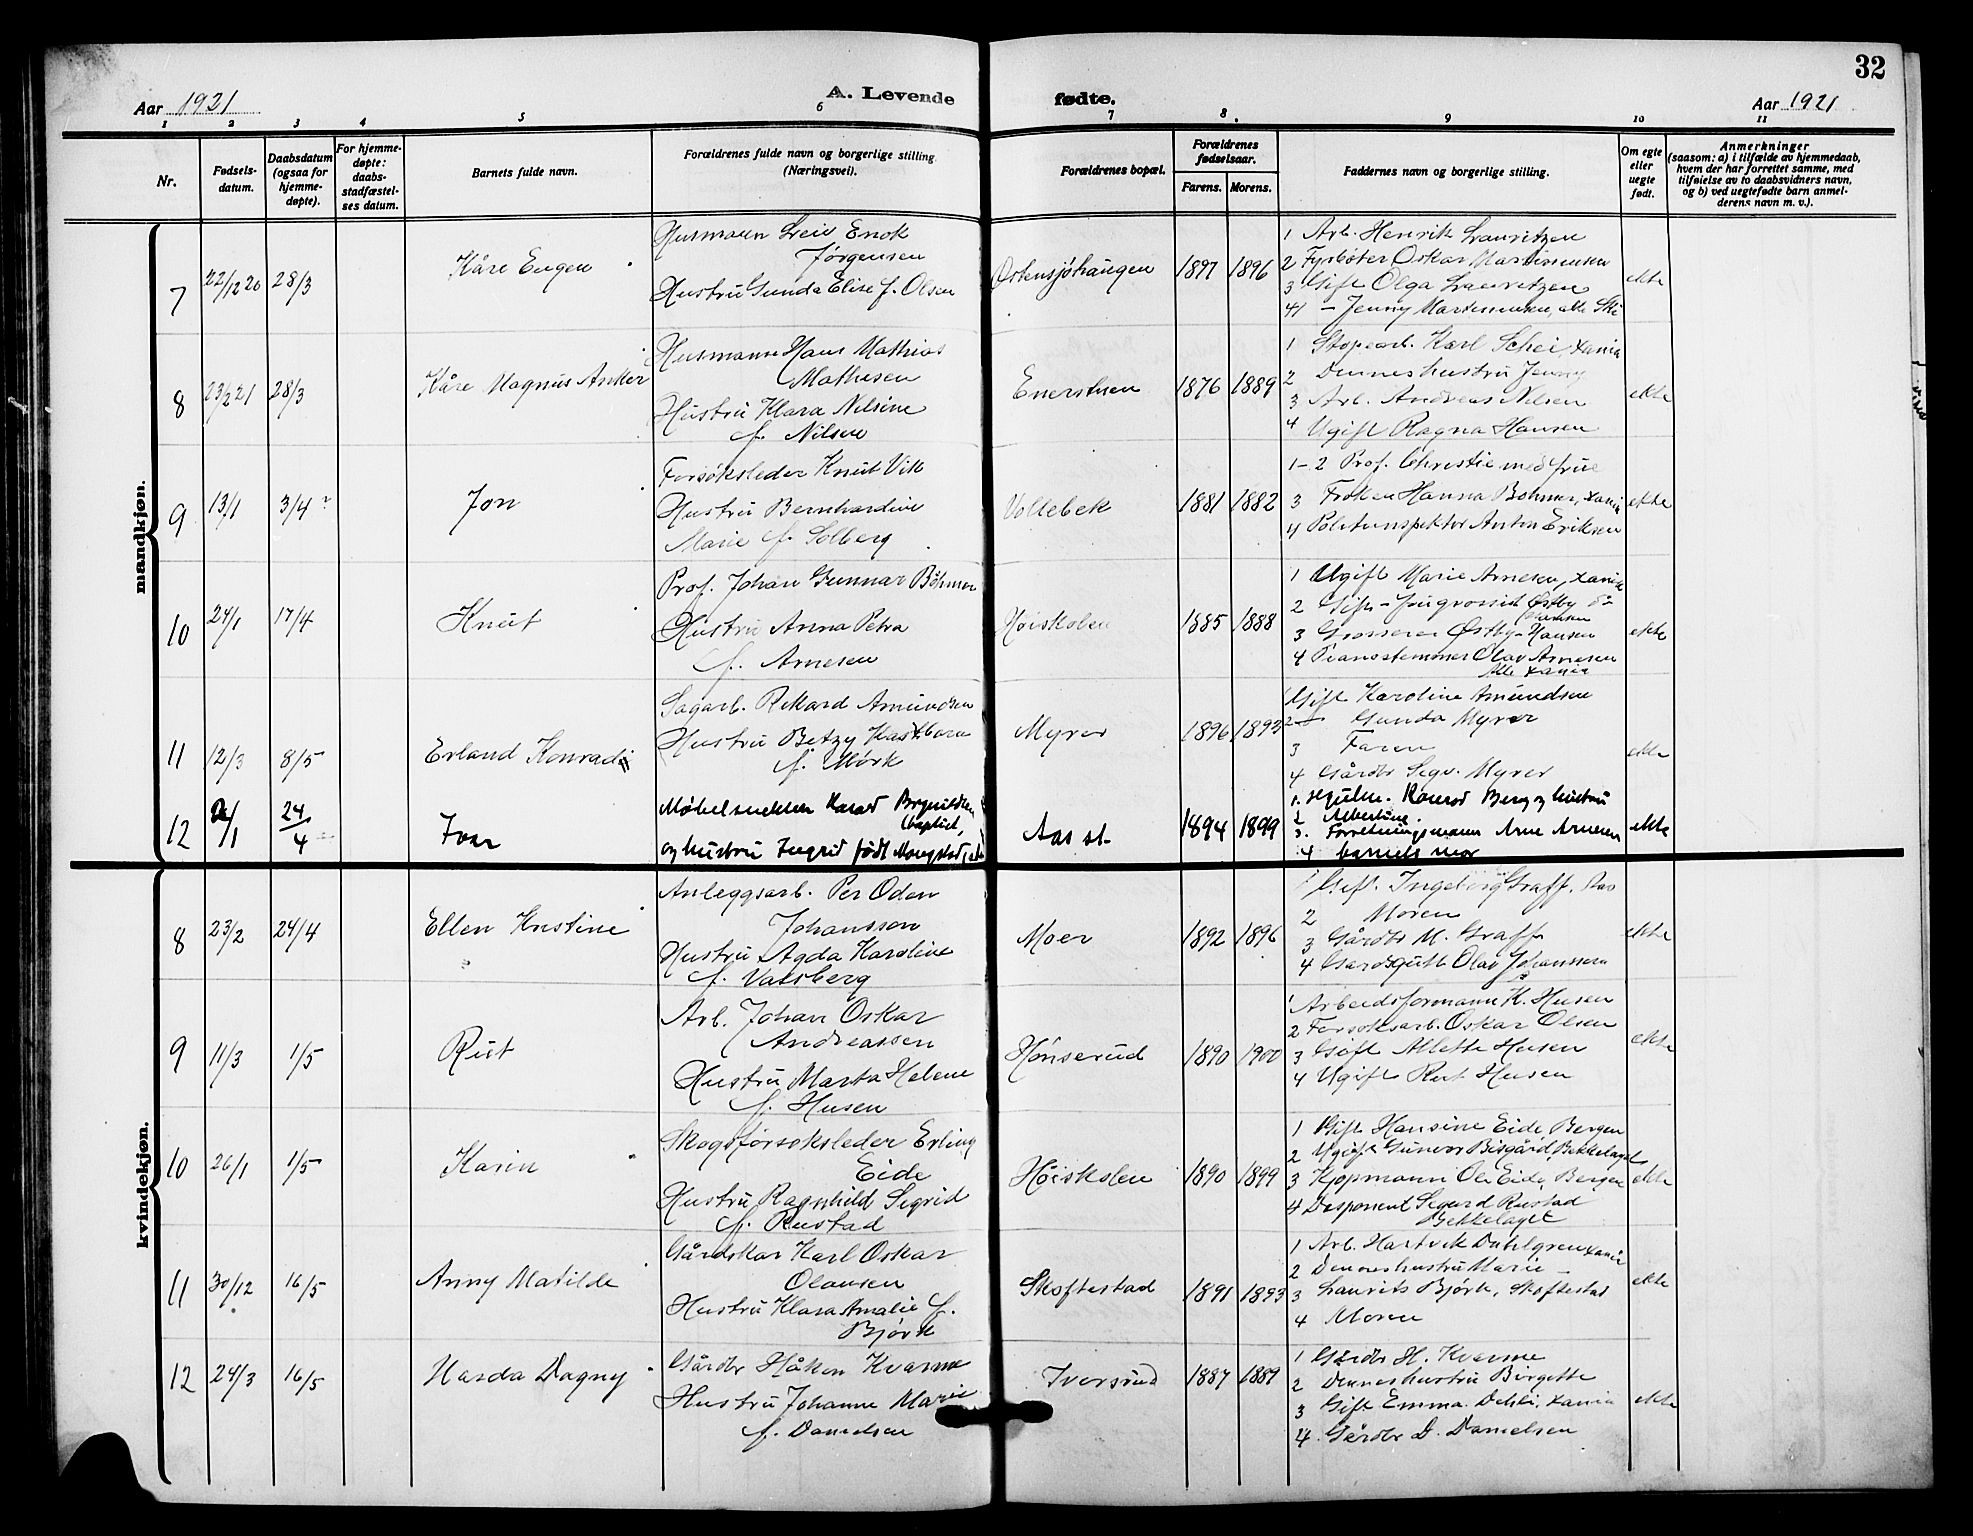 32
Aar 1921
A. Levende fødte.
Aar 1921
1 2 3 4 5 6 7 8. 9 10 11
Nr.
Fødsels-
datum.
Daabsdatum
(ogsaa for
hjemme-
døpte).
For hjemme-
døpte:
daabs-
stadfæstel-
ses datum.
Barnets fulde navn.
Forældrenes fulde navn og borgerlige stilling.
(Næringsvei).
Forældrenes bopæl.
Forældrenes
fødselsaar.
Farens. Morens.
Faddernes navn og borgerlige stilling.
Om egte
eller
uegte
født.
Anmerkninger
(saasom: a) i tilfælde av hjemmedaab,
hvem der har forrettet samme, med
tilføielse av to daabsvidners navn,
og b) ved uegtefødte barn anmel-
derens navn m. v.).
mandkjøn.
7 22/12 20 28/3 Kåre Eugen
Husmann Leiv Enok
Jørgensen
Hustru Gunda Elise f. Olsen
Østensjøhaugen 1897 1896
1 Arb. Henrik Lauritzen
2 Fyrbøter Oskar Martinsen
3 Gift Olga Lauritzen
4 - Jenny Martinsen, alle Ski
ekte
8 23/2 21 28/3 Kåre Magnus Anker
Husmann Hans Mathias
Mathisen
Hustru Klara Nilsine
f. Nilsen
Enerstuen 1876 1889
1 Stopearb. Karl Schei, Xania
2 Denneshustru Jenny
3 Arb. Andreas Nilsen
4 Ugift Ragna Hansen
ekte
9 13/1 3/4 Jon
Forsøksleder Knut Vik
Hustru Bernhardine
Marie f. Solberg
Vollebek 1881 1882
1-2 Prof. Christie med frue
3 Frøken Hanna Bøhmer, Xania
4 Politiinspektør Anton Eriksen
ekte
10 24/1 17/4 Knut
Prof. Johan Gunnar Bøhmer
Hustru Anna Petra
f. Arnesen
Høiskolen 1885 1888
1 Ugift Marie Arnesen, Xania
2 Gift Østby
Hansen
3 Grosserer Østby-Hansen
4 Pianostemmer Olav Arnesen
Alle Xania
ekte
11 12/3 8/5 Erland Konradi
Sagarb. Rikard Amundsen
Hustru Betzy
f. Mørk
Myrer 1896 1893
1 Gift Karoline Amundsen
2 - Gunda Myrer
3 Faren
4 Gårdbr Sigv. Myrer
ekte
12 24/4 Ivar
Møbelsnekker Harald Brynildsen
(baptist,
og hustru Ingrid født Mongstad,
Aas st. 1894 1899
1. Konrad Berg og hustru
2 Albertine.
3. Forretningsmann Arne Arnesen
4 barnets mor
ekte
kvindekjøn.
8 23/2 24/4 Ellen Kristine
Anleggsarb. Per Oden
Johansson
Hustru Agda Karoline
f. Vatsberg
Moer 1892 1896
1 Gift. Ingeborg Graff, Aas
2 Moren
3 Gårdbr M. Graff
4 Gardsgutt Olav Johanssen
ekte
9 11/3 1/5 Rut
Arb. Johan Oskar
Andreassen
Hustru Marta Helene
f. Husen
Hønserud 1890 1900
1 Arbeidsformann K. Husen
2 Forsøksarb. Oskar Olsen
3 Gift Allette Husen
4 Ugift Rut Husen
ekte
10 26/1 1/5 Karin
Skogsforsøksleder Erling
Eide
Hustru Ragnhild Sigrid
f. Rustad
Høiskolen 1890 1899
1 Gift Hansine Eide Bergen
2 Ugift Gunvor Bisgård, Bekkelaget
3 Kjøpmann Ole Eide, Bergen
4 Disponent Sigurd Rustad
Bekkelaget
ekte
11 30/12 16/5 Anny Matilde
Gårdskar Karl Oskar
Olausen
Hustru Klara Amalie f.
Bjørk
Skoftestad 1891 1893
1 Arb. Hartvik Dahlgren Xania
2 Denneshustru Marie -
3 Laurits Bjørk, Skoftestad
4 Moren
ekte
12 24/3 16/5 Harda Dagny
Gårdbr Håkon Kvarme
Hustru Johanne Marie
f. Danielsen
Iversrud 1887 1889
1 Gårdbr H. Kvarme
2 Denneshustru Birgette
3 Gift Emma Dehli, Xania
4. Gårdbr D. Danielsen
ekte